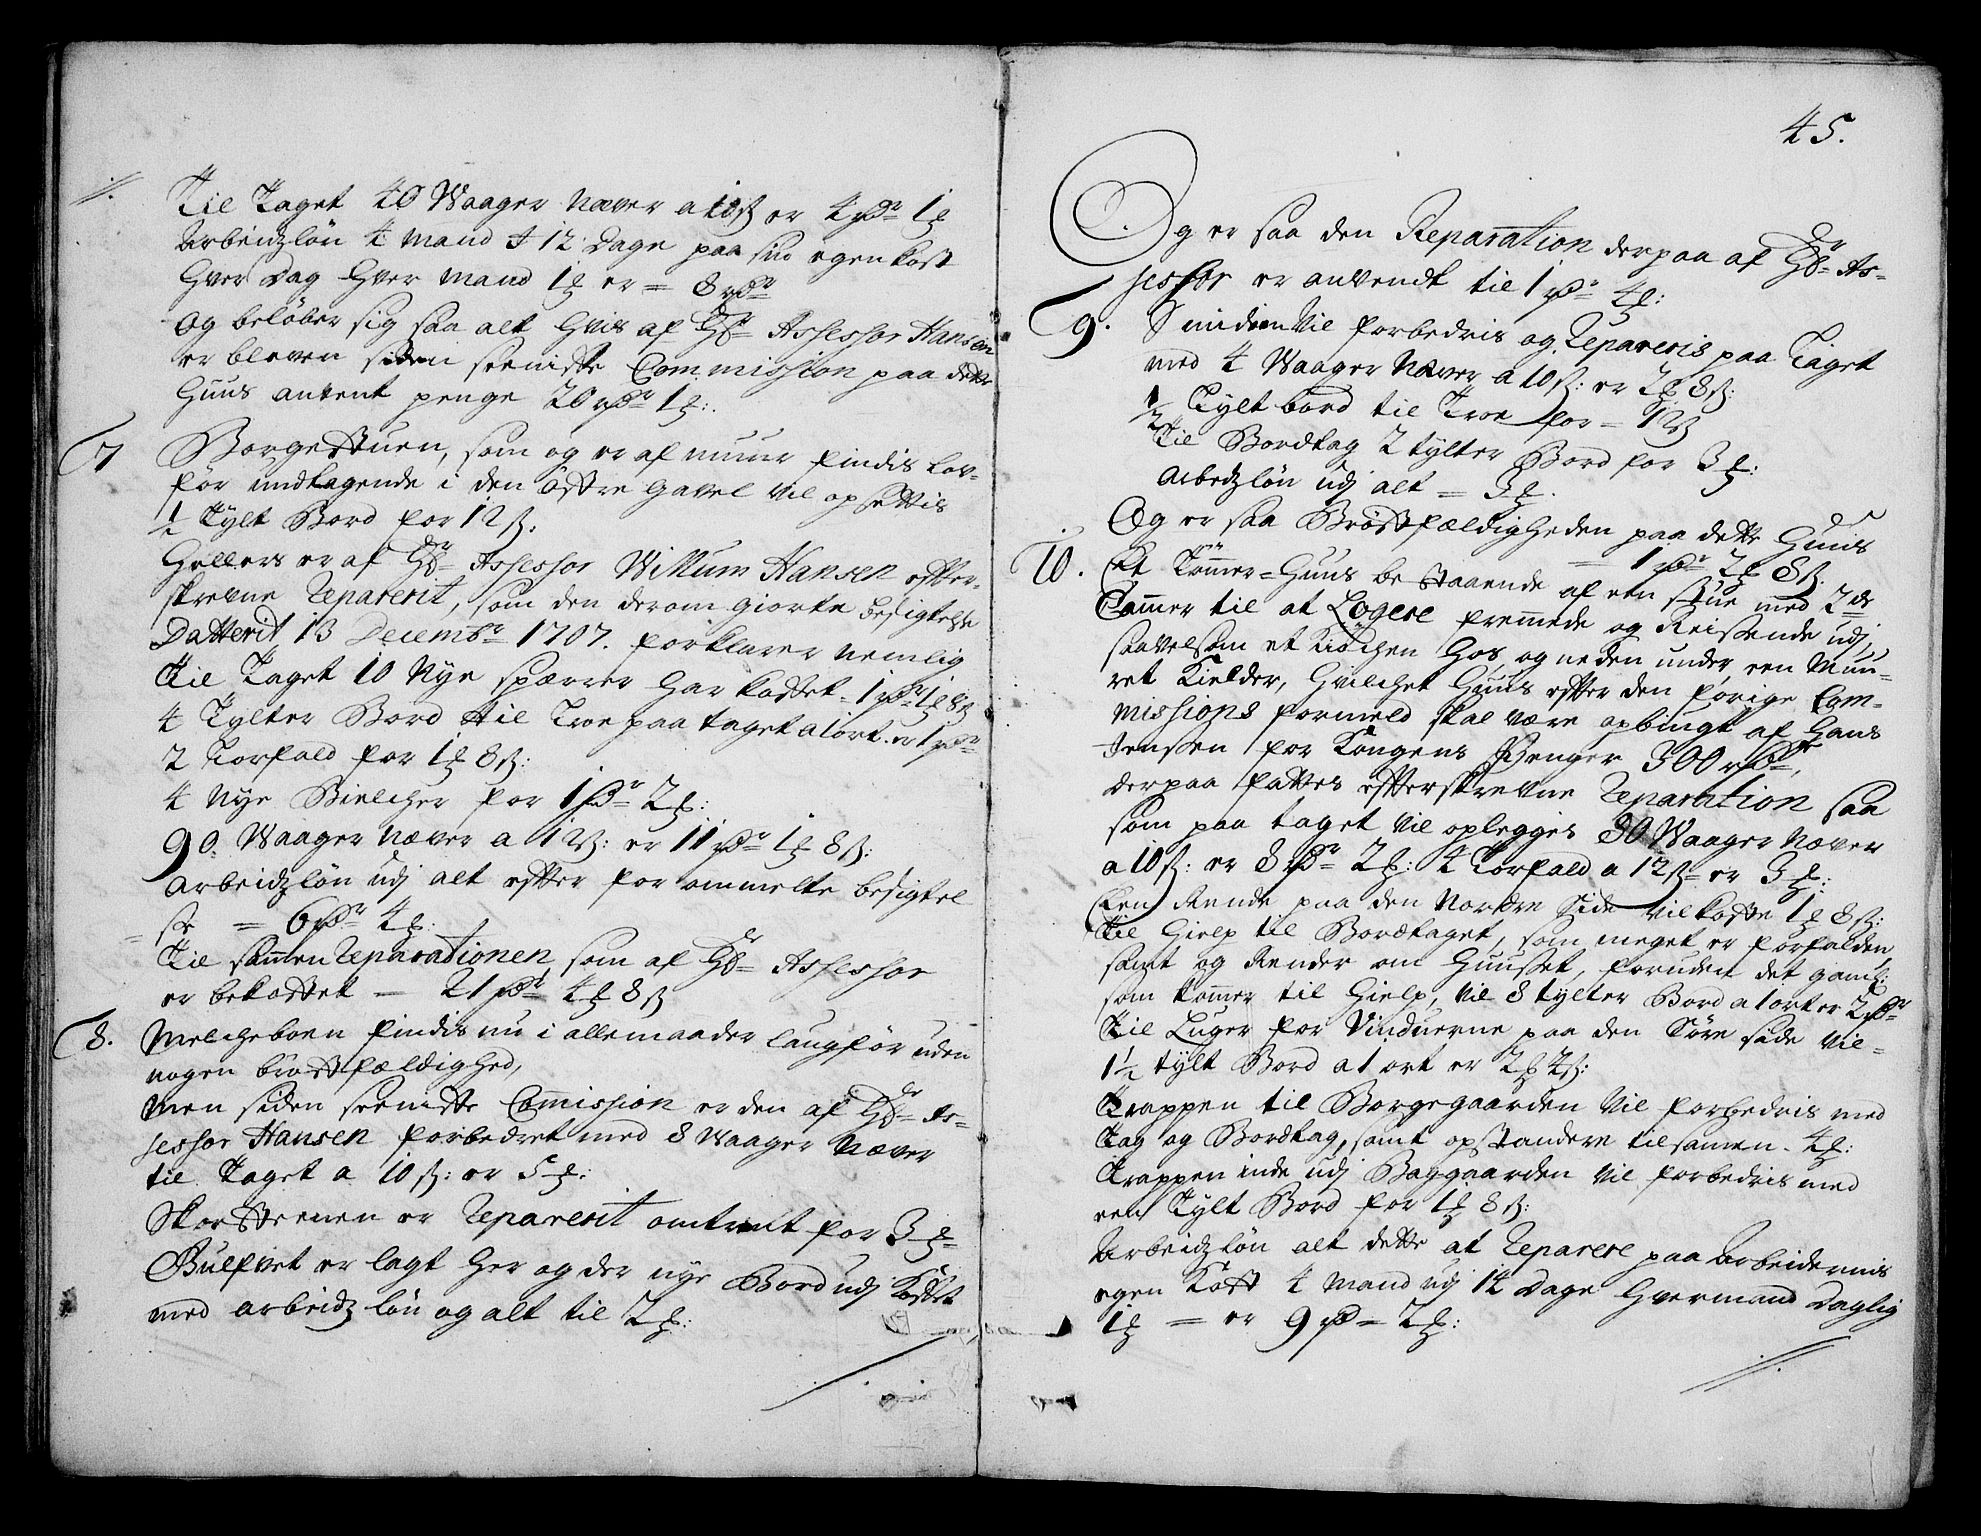 ·/.
Til Taget 40 Waager Næver a 10 ß er 4 rdr 1 ¤
Arbeidzløn 4 Mand i 12 Dage paa sin egen kost
hver Dag hver Mand 1 ¤ er = 8 rdr
og beløber sig saa alt hvis af Hr Assessor Hansen
er bleven siden seeniste Commission paa dette
Huus anvent penge 20 rdr 1 ¤:
7 Borgestuen, som og er af muur findis lov-
før undtagende i den østre gavel vil opsettis
½ Tylt Bord for 12 ß:
Hellers er af Hr Assessor Willum Hansen efter-
skrevne Reparerit, som den derom giorte besigtelse
Datterit 13 Decembr 1707. forklarer nemlig
Til Taget 10 Nye spærrer har kostet - 1 rdr 1 ¤ 8 ß
4 Tylter Bord til Troe paa taget a 1 ort. er 1 rdr
2 Torfald for 1 ¤ 8 ß:
4 Nye Bielcher for 1 rdr 2 ¤:
90. Waager Næver a 12 ß: er 11 rdr 1 ¤ 8 ß:
Arbeidzløn udj alt efter for ommelte besigtel
se = 6 rdr 4 ¤:
Til sammen Reparationen som af Hr Assessor
er bekostet — 21 rdr 4 ¤ 8 ß
8. Melcheboen findis nu i allemaader laugfør uden
nogen brøstfældighed,
Men siden seeniste Commission er den af Hr As-
sessor Hansen forbedret med 8 Waager Næver
til Taget a 10 ß: er 5 ¤:
Skorsteenen er Reparerit omtrent for 3 ¤
Gulfvet er lagt her og der nye Bord udj kostet
med arbeidzløn og alt til 2 ¤:
45.
Og er saa den Reparation derpaa af Hr As-
sessor er anvendt til 1 rdr 4 ¤:
9. Smidien Vil forbedris og Repareris paa Taget
med 4 Waager Næver a 10 ß: er 2 ¤ 8 ß:
½ Tylt bord til Troe for - 12 ß
Til Bordtag 2 tylter Bord for 3 ¤:
Arbedzløn udj alt = 3 ¤.
Og er saa Brøstfældigheden paa dette Huus
— 1 rdr 2 ¤ 8 ß.
10. Et Tømmer-Huus bestaaende af een stue med 2de
Cammer til at Logere fremmede og Reisende udj
saavelsom et Kiøchen hos, og neden under, een Muu-
ret Kielder, hvilchet Huus efter den forige Com-
missions formeld skal være opbingt af Hans
Jenssen for Kongens Penger 300 rdr,
derpaa fattes efterskrevne Reparation saa
som paa taget vil oplegges 30 Waager Næver
a 10 ß: er 8 rdr 2 ¤: 4 Torfald a 12 ß er 3 ¤:
Een Rende paa den Nordre Side vil koste 1 ¤ 8 ß:
Til Hielp til Bordtaget, som meget er forfalden,
samt og Render om Huuset, foruden det gaml:
som kommer til Hielp, vil 8 tylter Bord a 1 ort er 2 rdr
Til Luger for Vinduerne paa den Søre side vil-
1½ tylt Bord a 1 ort er 2 ¤ 2 ß:
Trappen til Borgegaarden Vil forbedris med
Tag og Bordtag, samt opstandere tilsamen - 4 ¤:
Trappen inde udj Baggaarden vil forbedris med
een Tylt Bord for 1 ¤ 8 ß:
Arbeidzløn alt dette at Reparere paa Arbeidernis
egen Kost 4 Mand udj 14 Dage hvermand Daglig
1 ¤ = er 9 rd = 2 ¤:
·/.